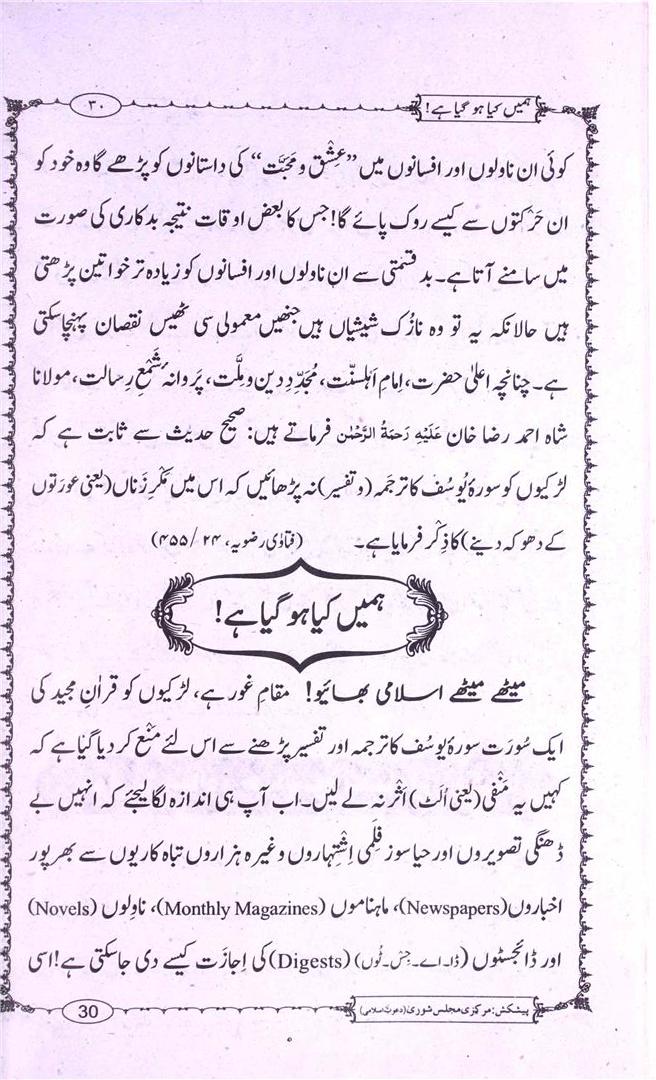 ہمیں کیا ہو گیا ہے!
۳۰
کوئی ان ناولوں اور افسانوں میں ”عِشْق و مَحَبَّت“ کی داستانوں کو پڑھے گا وہ خود کو
ان حَرَکتوں سے کیسے روک پائے گا! جس کا بعض اوقات نتیجہ بدکاری کی صورت
میں سامنے آتا ہے۔ بدقسمتی سے اِن ناولوں اور افسانوں کو زیادہ تر خواتین پڑھتی
ہیں حالانکہ یہ تو وہ نازُک شیشیاں ہیں جنھیں معمولی سی ٹھیس نقصان پہنچا سکتی
ہے۔ چنانچہ اعلیٰ حضرت، اِمامِ اَہلسنّت، مُجَدِّدِ دین و ملّت، پروانۂ شَمْعِ رِسالت، مولانا
شاہ احمد رضا خان عَلَیْهِ رَحمَۃُ الرَّحْمٰن فرماتے ہیں: صحیح حدیث سے ثابت ہے کہ
لڑکیوں کو سورۂ یُوسُف کا ترجَمہ (و تفسیر) نہ پڑھائیں کہ اس میں مَکْرِ زَناں (یعنی عورتوں
کے دھوکہ دینے) کا ذِکْر فرمایا ہے۔ (فتاوٰی رضویہ، ۲۴/۴۵۵)
ہمیں کیا ہو گیا ہے!
میٹھے میٹھے اسلامی بھائیو! مقامِ غور ہے، لڑکیوں کو قراٰنِ مجید کی
ایک سُورَت سورۂ یُوسُف کا ترجمہ اور تفسیر پڑھنے سے اس لئے مَنْع کر دیا گیا ہے کہ
کہیں یہ مَنْفی (یعنی اُلَٹ) اَثَر نہ لے لیں۔ اب آپ ہی اندازہ لگا لیجئے کہ انہیں بے
ڈھنگی تصویروں اور حیا سوز فِلْمی اِشْتِہاروں وغیرہ ہزاروں تباہ کاریوں سے بھرپور
اخباروں (Newspapers)، ماہناموں (Monthly Magazines)، ناوِلوں (Novels)
اور ڈائجسٹوں (ڈا۔اے۔جِس۔ٹوں) (Digests) کی اِجازَت کیسے دی جاسکتی ہے! اسی
پیشکش: مرکزی مجلس شوریٰ (دعوتِ اسلامی)
30